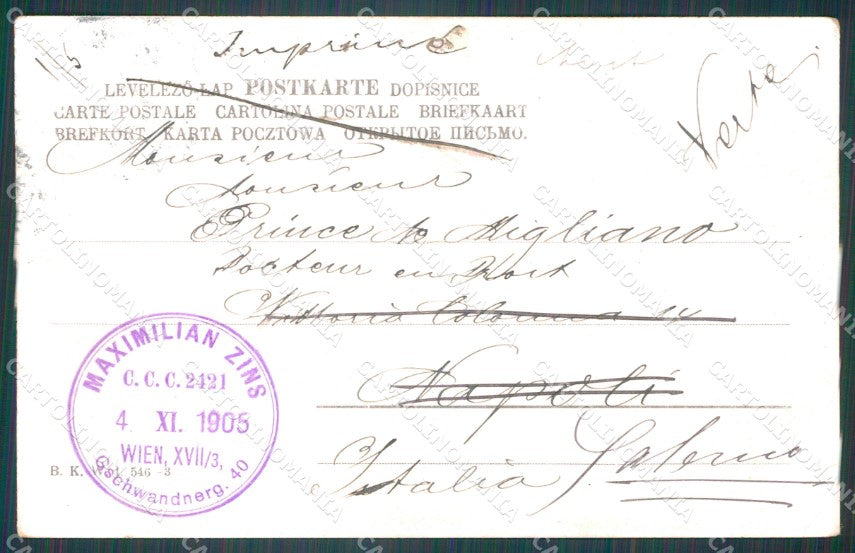 Imprimé
LEVELEZŐ-LAP POSTKARTE DOPISNICE
CARTE POSTALE CARTOLINA POSTALE BRIEFKAART
BREFKORT KARTA POCZTOWA ОТКРЫТОЕ ПИСЬМО.
Monsieur
Monsieur
Prince de Migliano
Docteur en
Vittoria Colonna 14
Napoli
Italia Salerno
MAXIMILIAN ZINS
C. C. C. 2421
4 XI. 1905
WIEN, XVII/3,
Gschwandnerg. 40
B. K. W. I. 546 - 3
CARTOLINOMANIA